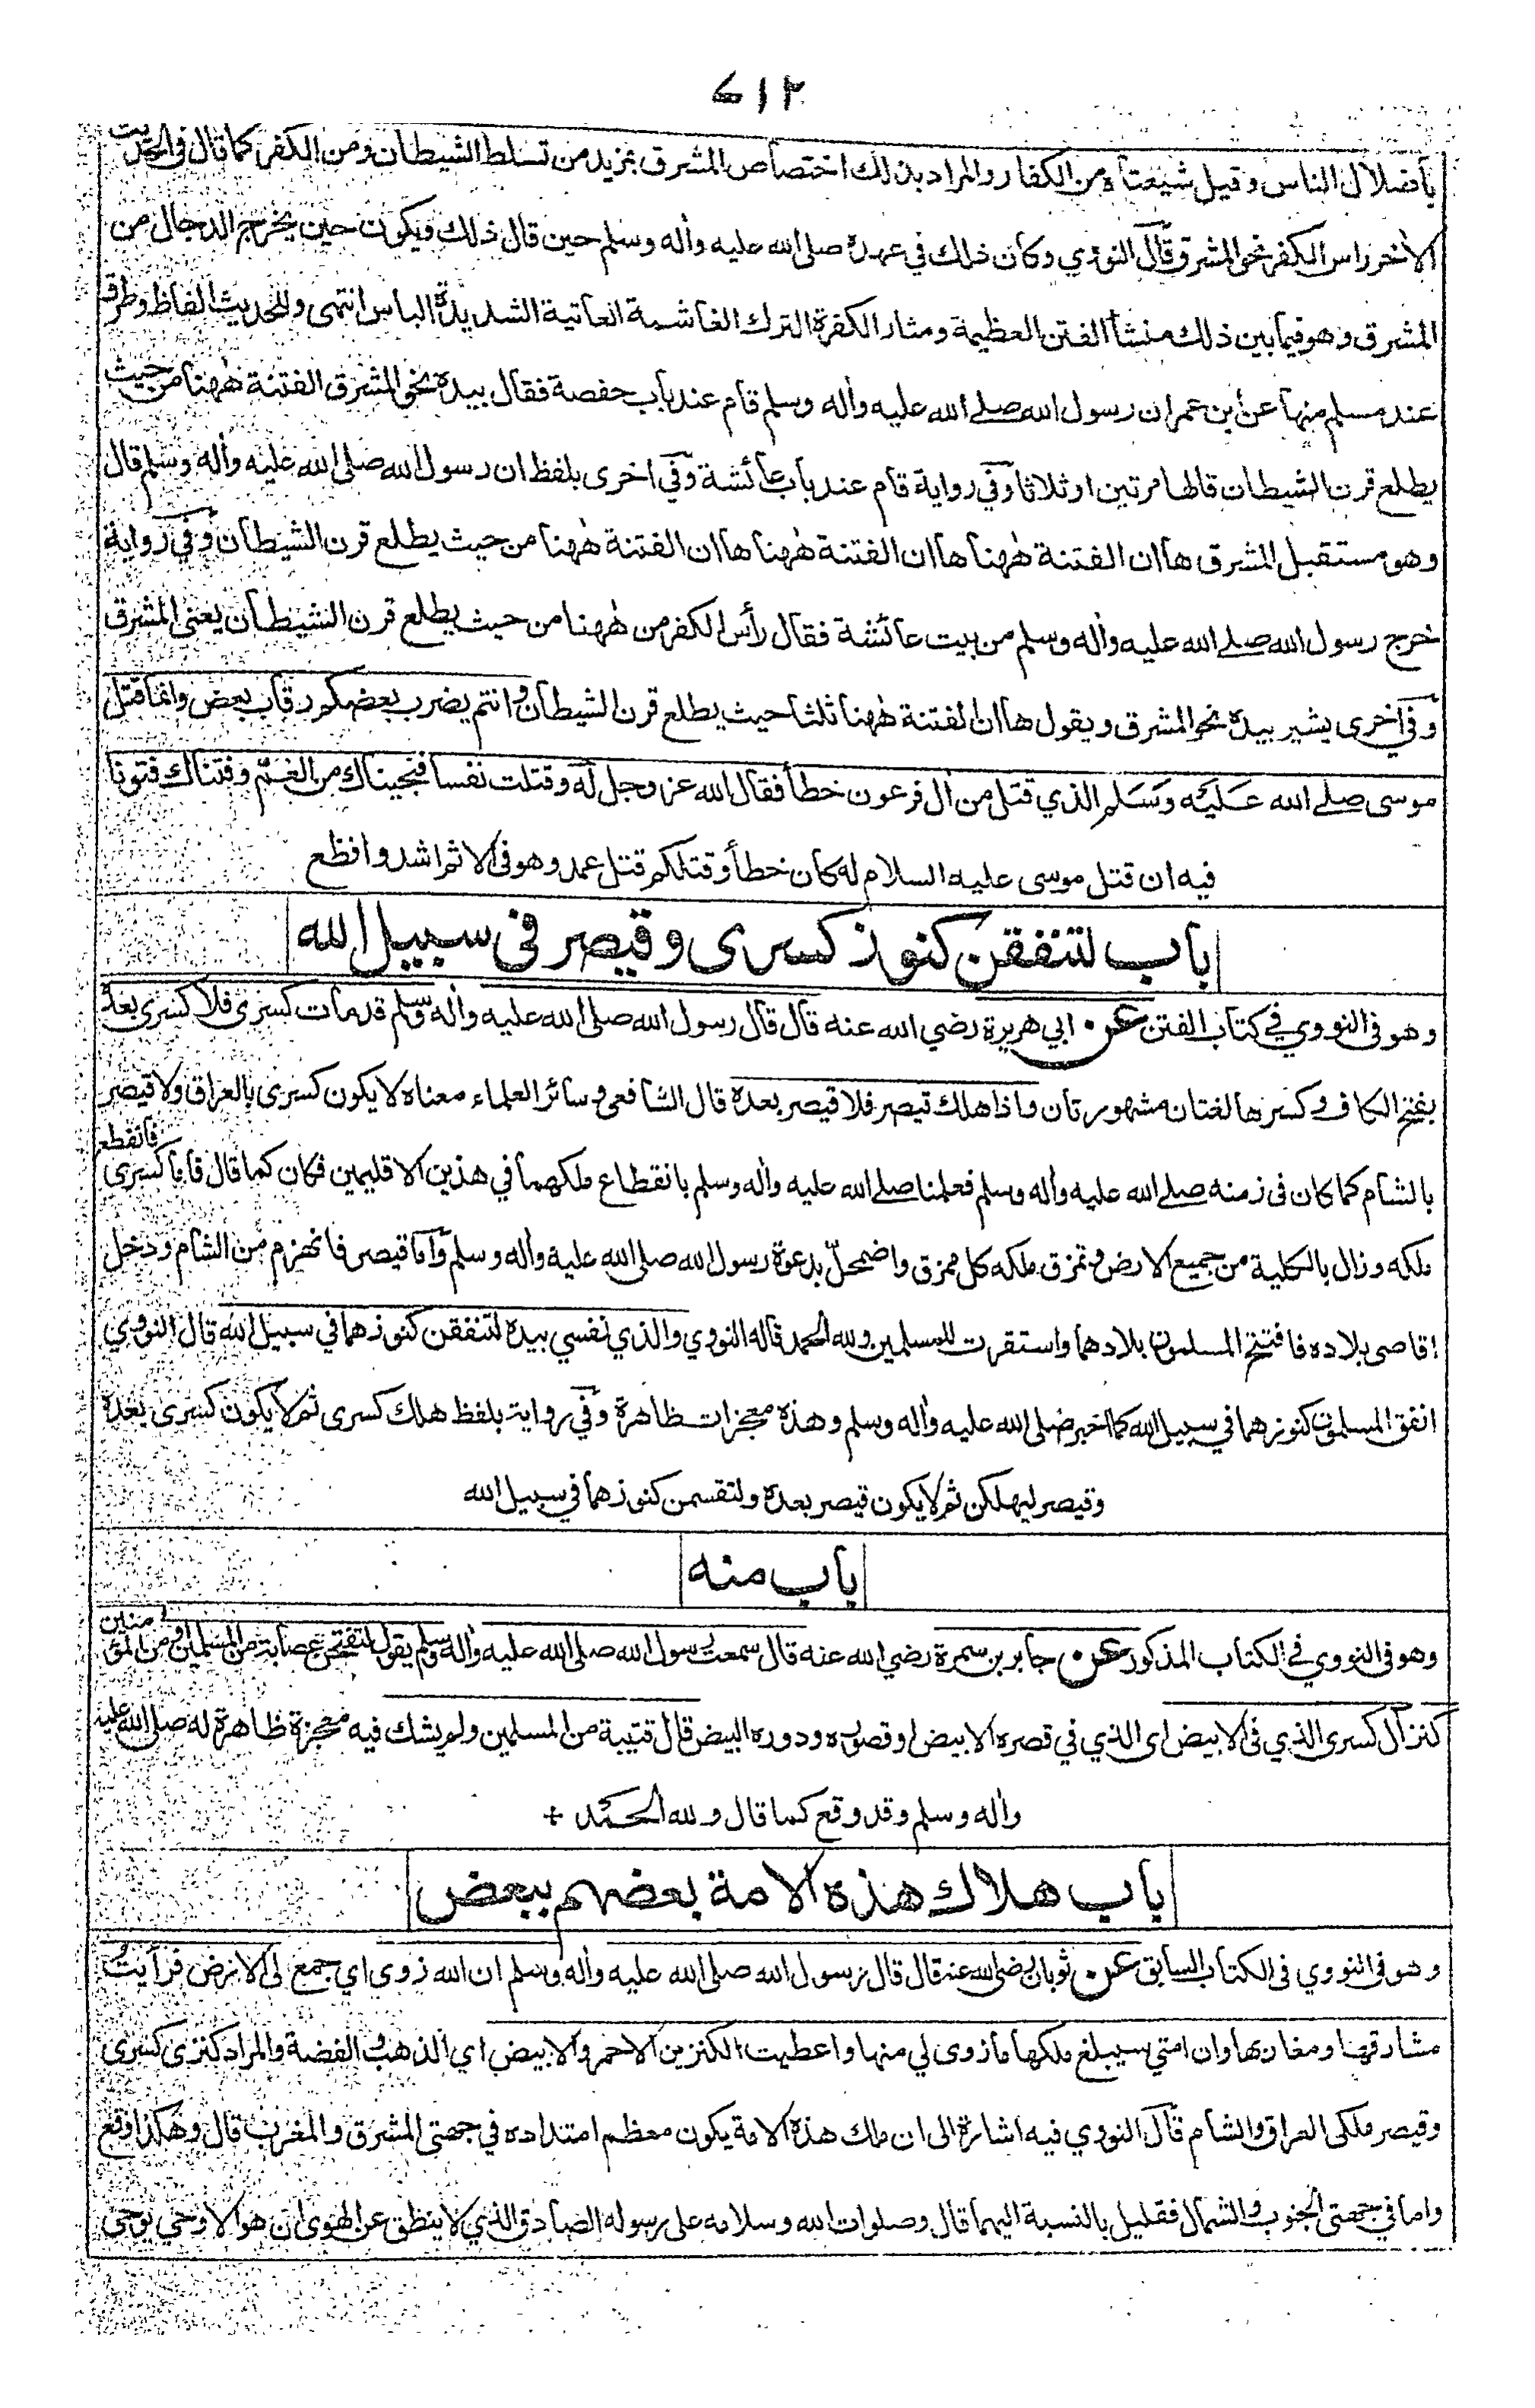 ۷۱۲
بأضلال الناس وقيل شيعتاه من الكفار والمراد بذلك اختصاص المشرق بمزيد من تسلط الشيطان ومن الكفر كما قال في الحديث
الاخر راس الكفر نحو المشرق قال النووي وكان ذلك في عهده صلى الله عليه وأله وسلم حين قال ذلك ويكون حين يخرج الدجال من
المشرق وهو فيما بين ذلك منشأ الفتن العظيمة ومثار الكفرة الترك الغاشمة العاتية الشديدة الباس انتهى وللحديث الفاظ وطرق
عند مسلم منها عن ابن عمر ان رسول الله صلى الله عليه وأله وسلم قام عند باب حفصة فقال بيده نحو المشرق الفتنة ههنا من حيث
يطلع قرن الشيطان قالها مرتين او ثلاثا وفي رواية قام عند باب عائشة وفي اخرى بلفظ ان رسول الله صلى الله عليه وأله وسلم قال
وهو مستقبل المشرق ها ان الفتنة ههنا ها ان الفتنة ههنا ها ان الفتنة ههنا من حيث يطلع قرن الشيطان وفي رواية
خرج رسول الله صلى الله عليه وأله وسلم من بيت عائشة فقال رأس الكفر من ههنا من حيث يطلع قرن الشيطان يعنى المشرق
وفي اخرى يشير بيده نحو المشرق ويقول ها ان الفتنة ههنا ثلثا حيث يطلع قرن الشيطان وانتم يضرب بعضكم رقاب بعض وانما قتل
موسى صلى الله عليه وسلم الذي قتل من أل فرعون خطأ فقال الله عز وجل له وقتلت نفسا فنجيناك من الغم وفتناك فتونا
فيه ان قتل موسى عليه السلام له كان خطأ وقتلكم قتل عمد وهو في الاثم اشد وافظع
باب لتنفقن كنوز كسرى وقيصر في سبيل الله
وهو في النووي في كتاب الفتن عن ابي هريرة رضي الله عنه قال قال رسول الله صلى الله عليه وأله وسلم قد مات كسرى فلا كسرى بعده
بفتح الكاف وكسرها لغتان مشهورتان واذا هلك قيصر فلا قيصر بعده قال الشافعي وسائر العلماء معناه لا يكون كسرى بالعراق ولا قيصر
بالشام كما كان في زمنه صلى الله عليه وأله وسلم فعلمنا صلى الله عليه وأله وسلم بانقطاع ملكهما في هذين الاقليمين فكان كما قال فاما كسرى فانقطع
ملكه وزال بالكلية من جميع الارض وتمزق ملكه كل ممزق واضمحل بدعوة رسول الله صلى الله عليه وأله وسلم وأما قيصر فانهزم من الشام ودخل
اقاصى بلاده فافتتح المسلمون بلادهما واستقرت للمسلمين ولله الحمد قاله النووي والذي نفسي بيده لتنفقن كنوزهما في سبيل الله قال النووي
انفق المسلمون كنوزهما في سبيل الله كما اخبر صلى الله عليه وأله وسلم وهذه معجزات ظاهرة وفي رواية بلفظ هلك كسرى ثم لا يكون كسرى بعده
وقيصر ليهلكن ثم لا يكون قيصر بعده ولتقسمن كنوزهما في سبيل الله
باب منه
وهو في النووي في الكتاب المذكور عن جابر بن سمرة رضي الله عنه قال سمعت رسول الله صلى الله عليه وأله وسلم يقول لتفتحن عصابة من المسلمين او من المؤمنين
كنز أل كسرى الذي في الابيض اى الذي في قصره الابيض او قصوره ودوره البيض قال قتيبة من المسلمين ولم يشك فيه معجزة ظاهرة له صلى الله عليه
وأله وسلم وقد وقع كما قال ولله الحمد +
باب هلاك هذه الامة بعضهم ببعض
وهو في النووي في الكتاب السابق عن ثوبان رضي الله عنه قال قال رسول الله صلى الله عليه وأله وسلم ان الله زوى اي جمع لى الارض فرأيت
مشارقها ومغاربها وان امتي سيبلغ ملكها ما زوى لي منها واعطيت الكنزين الاحمر والابيض اي الذهب والفضة والمراد كنزى كسرى
وقيصر ملكى العراق والشام قال النووي فيه اشارة الى ان ملك هذه الامة يكون معظم امتداده في جهتى المشرق والمغرب قال وهكذا وقع
واما في جهتى الجنوب والشمال فقليل بالنسبة اليهما قال وصلوات الله وسلامه على رسوله الصادق الذي لا ينطق عن الهوى ان هو الا وحي يوحى